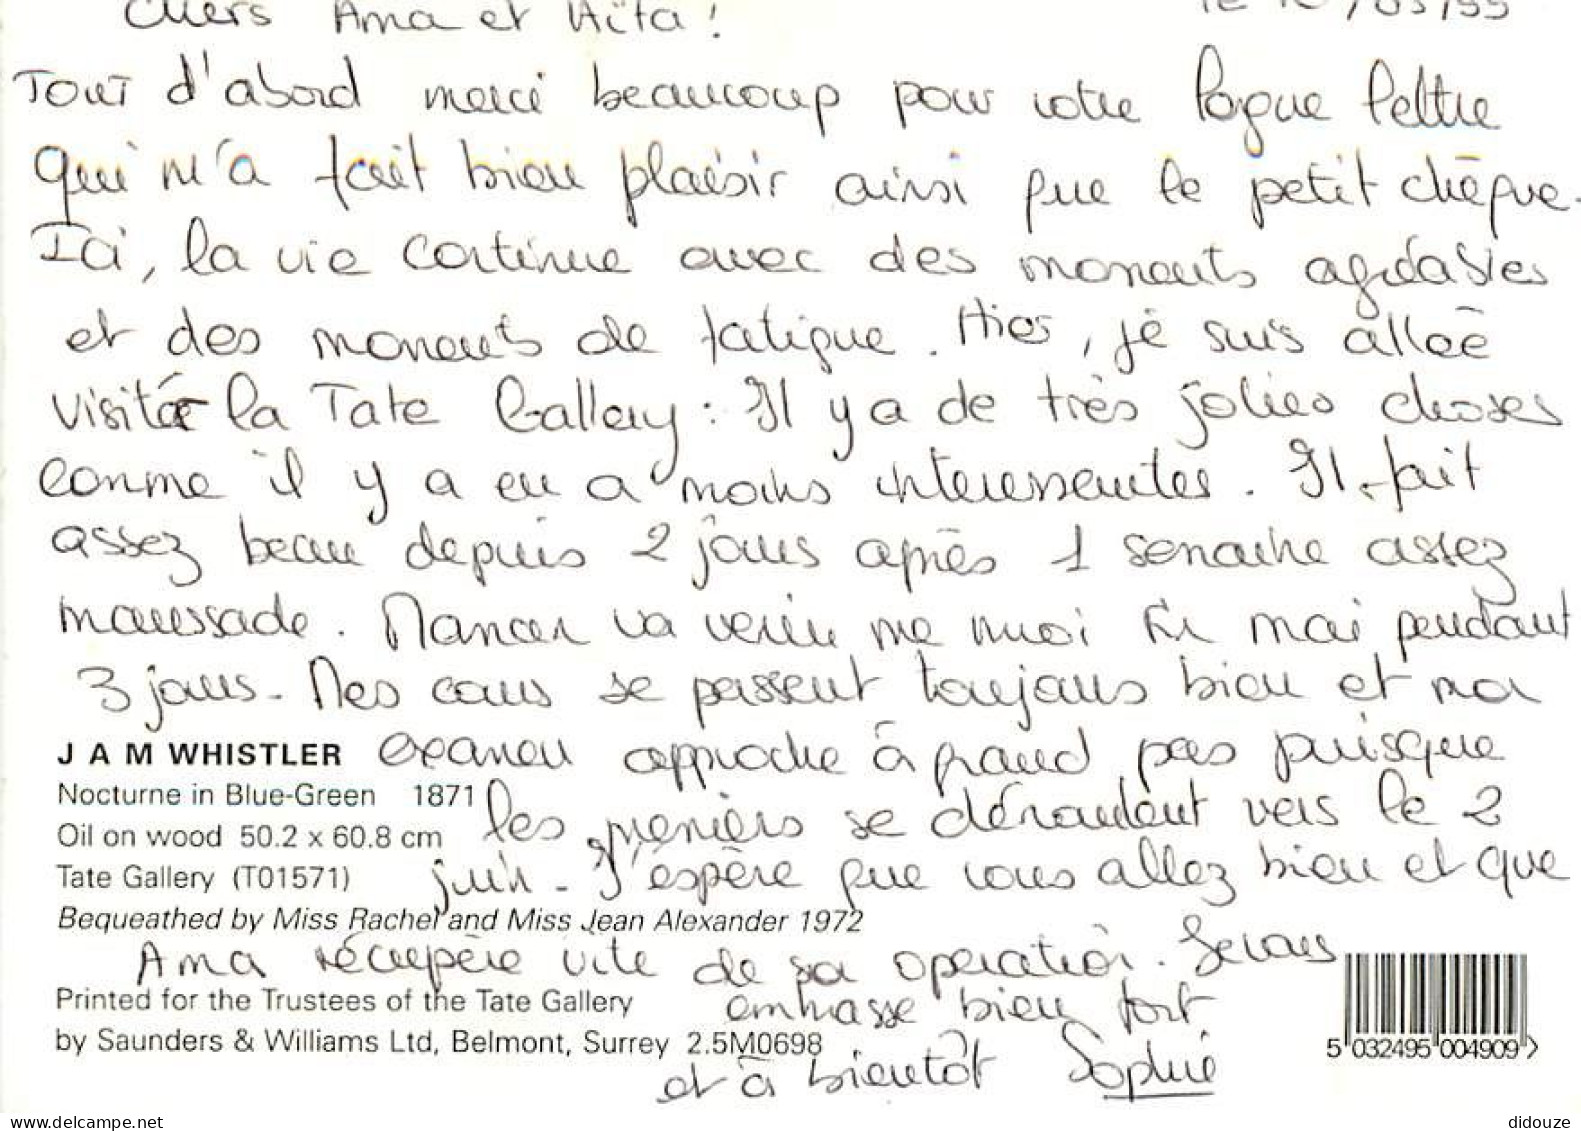 Chers Ama et Aïta !
Tout d'abord merci beaucoup pour votre longue lettre
qui m'a fait bien plaisir ainsi que le petit chèque.
Ici, la vie continue avec des moments agréables
et des moments de fatigue. Hier, je suis allée
visiter la Tate Gallery : Il y a de très jolies choses
comme il y a en a moins interessentes. Il fait
assez beau depuis 2 jours après 1 semaine assez
maussade. Maman va venir me voir en mai pendant
3 jours. Mes cours se passent toujours bien et mon
J A M WHISTLER examen approche à grand pas puisque
Nocturne in Blue-Green 1871 les premiers se déroulent vers le 2
Oil on wood 50.2 x 60.8 cm
Tate Gallery (T01571) juin. J'espère que vous allez bien et que
Bequeathed by Miss Rachel and Miss Jean Alexander 1972
Ama récupère vite de sa operation. Je vous
Printed for the Trustees of the Tate Gallery embrasse bien fort
by Saunders & Williams Ltd, Belmont, Surrey 2.5M0698
5 032495 004909 >
et à bientôt Sophie
delcampe.net
didouze